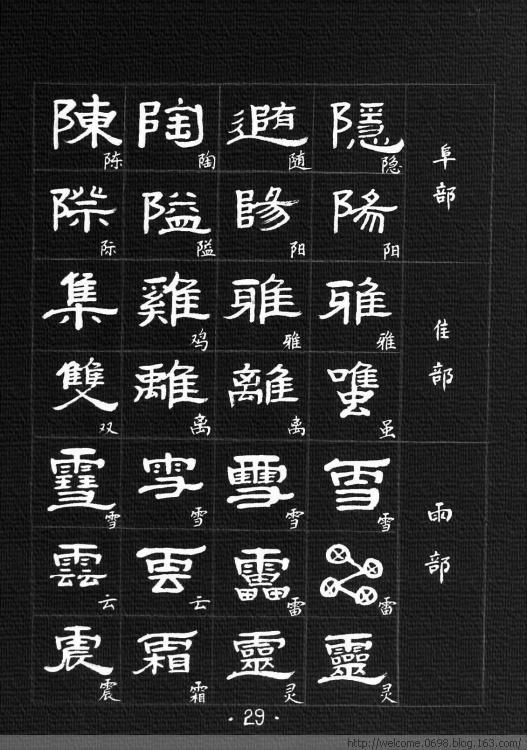 陳陈 陶陶 随 隱隐 阜部
際际 隘隘 陽阳 陽阳
集 雞鸡 雅雅 雅雅 隹部
雙双 離离 離离 雖虽
雪 雪 雪雪 雪雪 雨部
雲云 雲云 靁雷 雷
震震 霜霜 靈灵 靈灵
·29·
http://welcome.0698.blog.163.com/